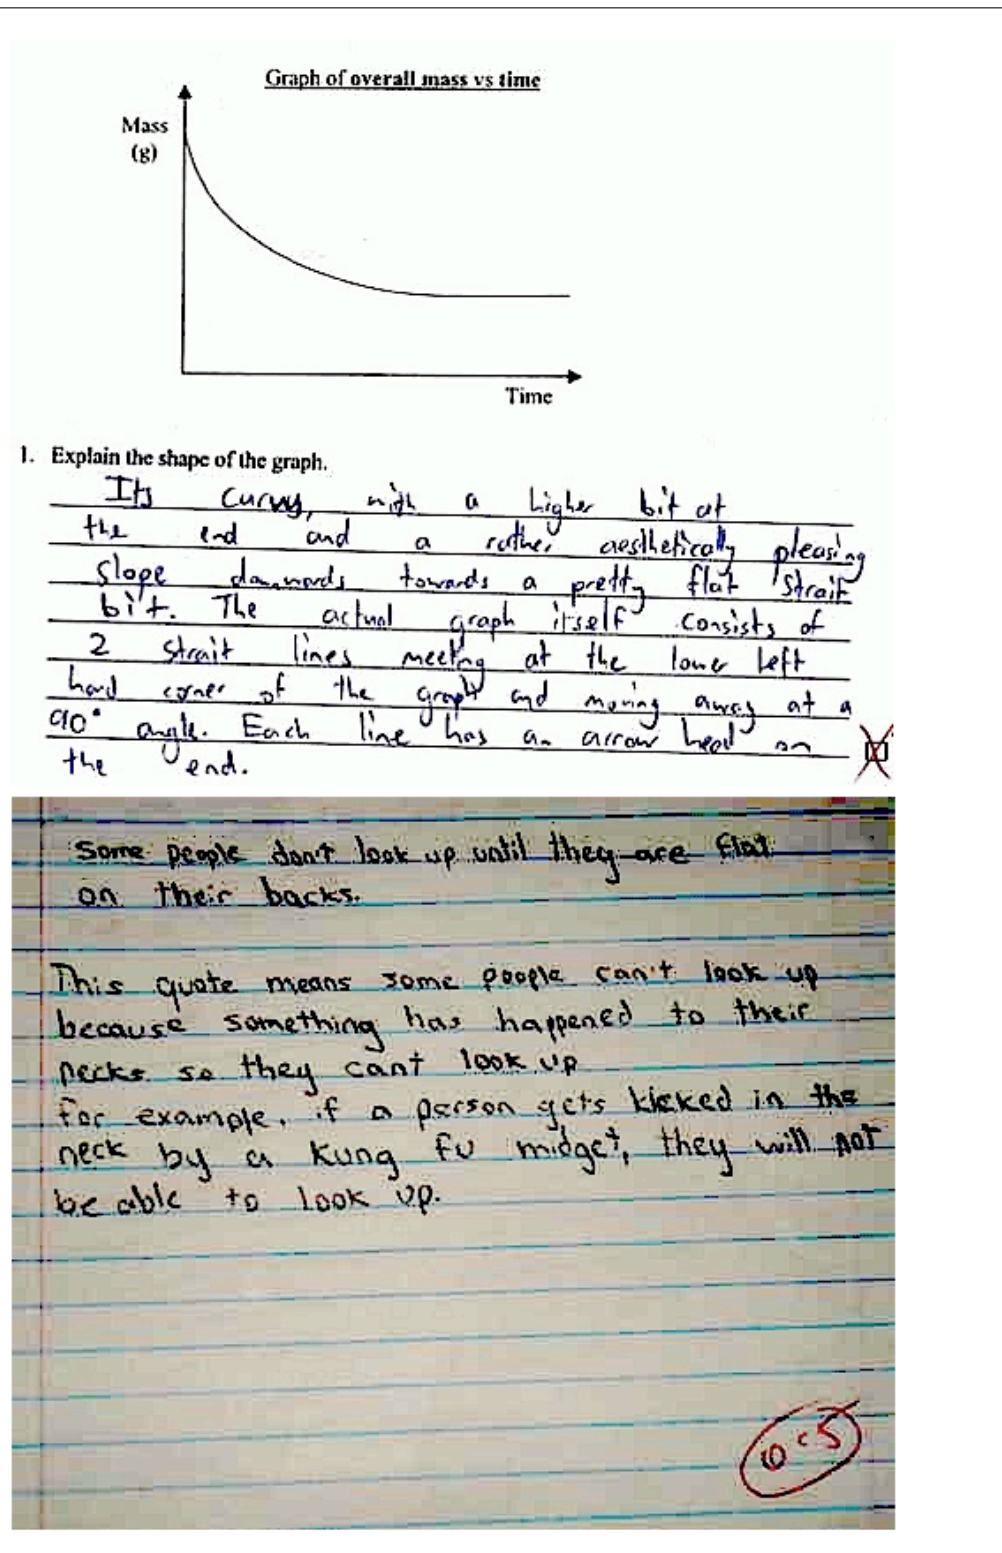 Graph of overall mass vs time
Mass
(g)
Time
1. Explain the shape of the graph.
Its curvy, with a higher bit at
the end and a rather aesthetically pleasing
slope downwards towards a pretty flat strait
bit. The actual graph itself consists of
2 strait lines meeting at the lower left
hand corner of the graph and moving away at a
90° angle. Each line has an arrow head on
the end.
Some people don't look up until they are flat
on their backs.
This quote means some people can't look up
because something has happened to their
necks so they can't look up
for example, if a person gets kicked in the
neck by a kung fu midget, they will not
be able to look up.